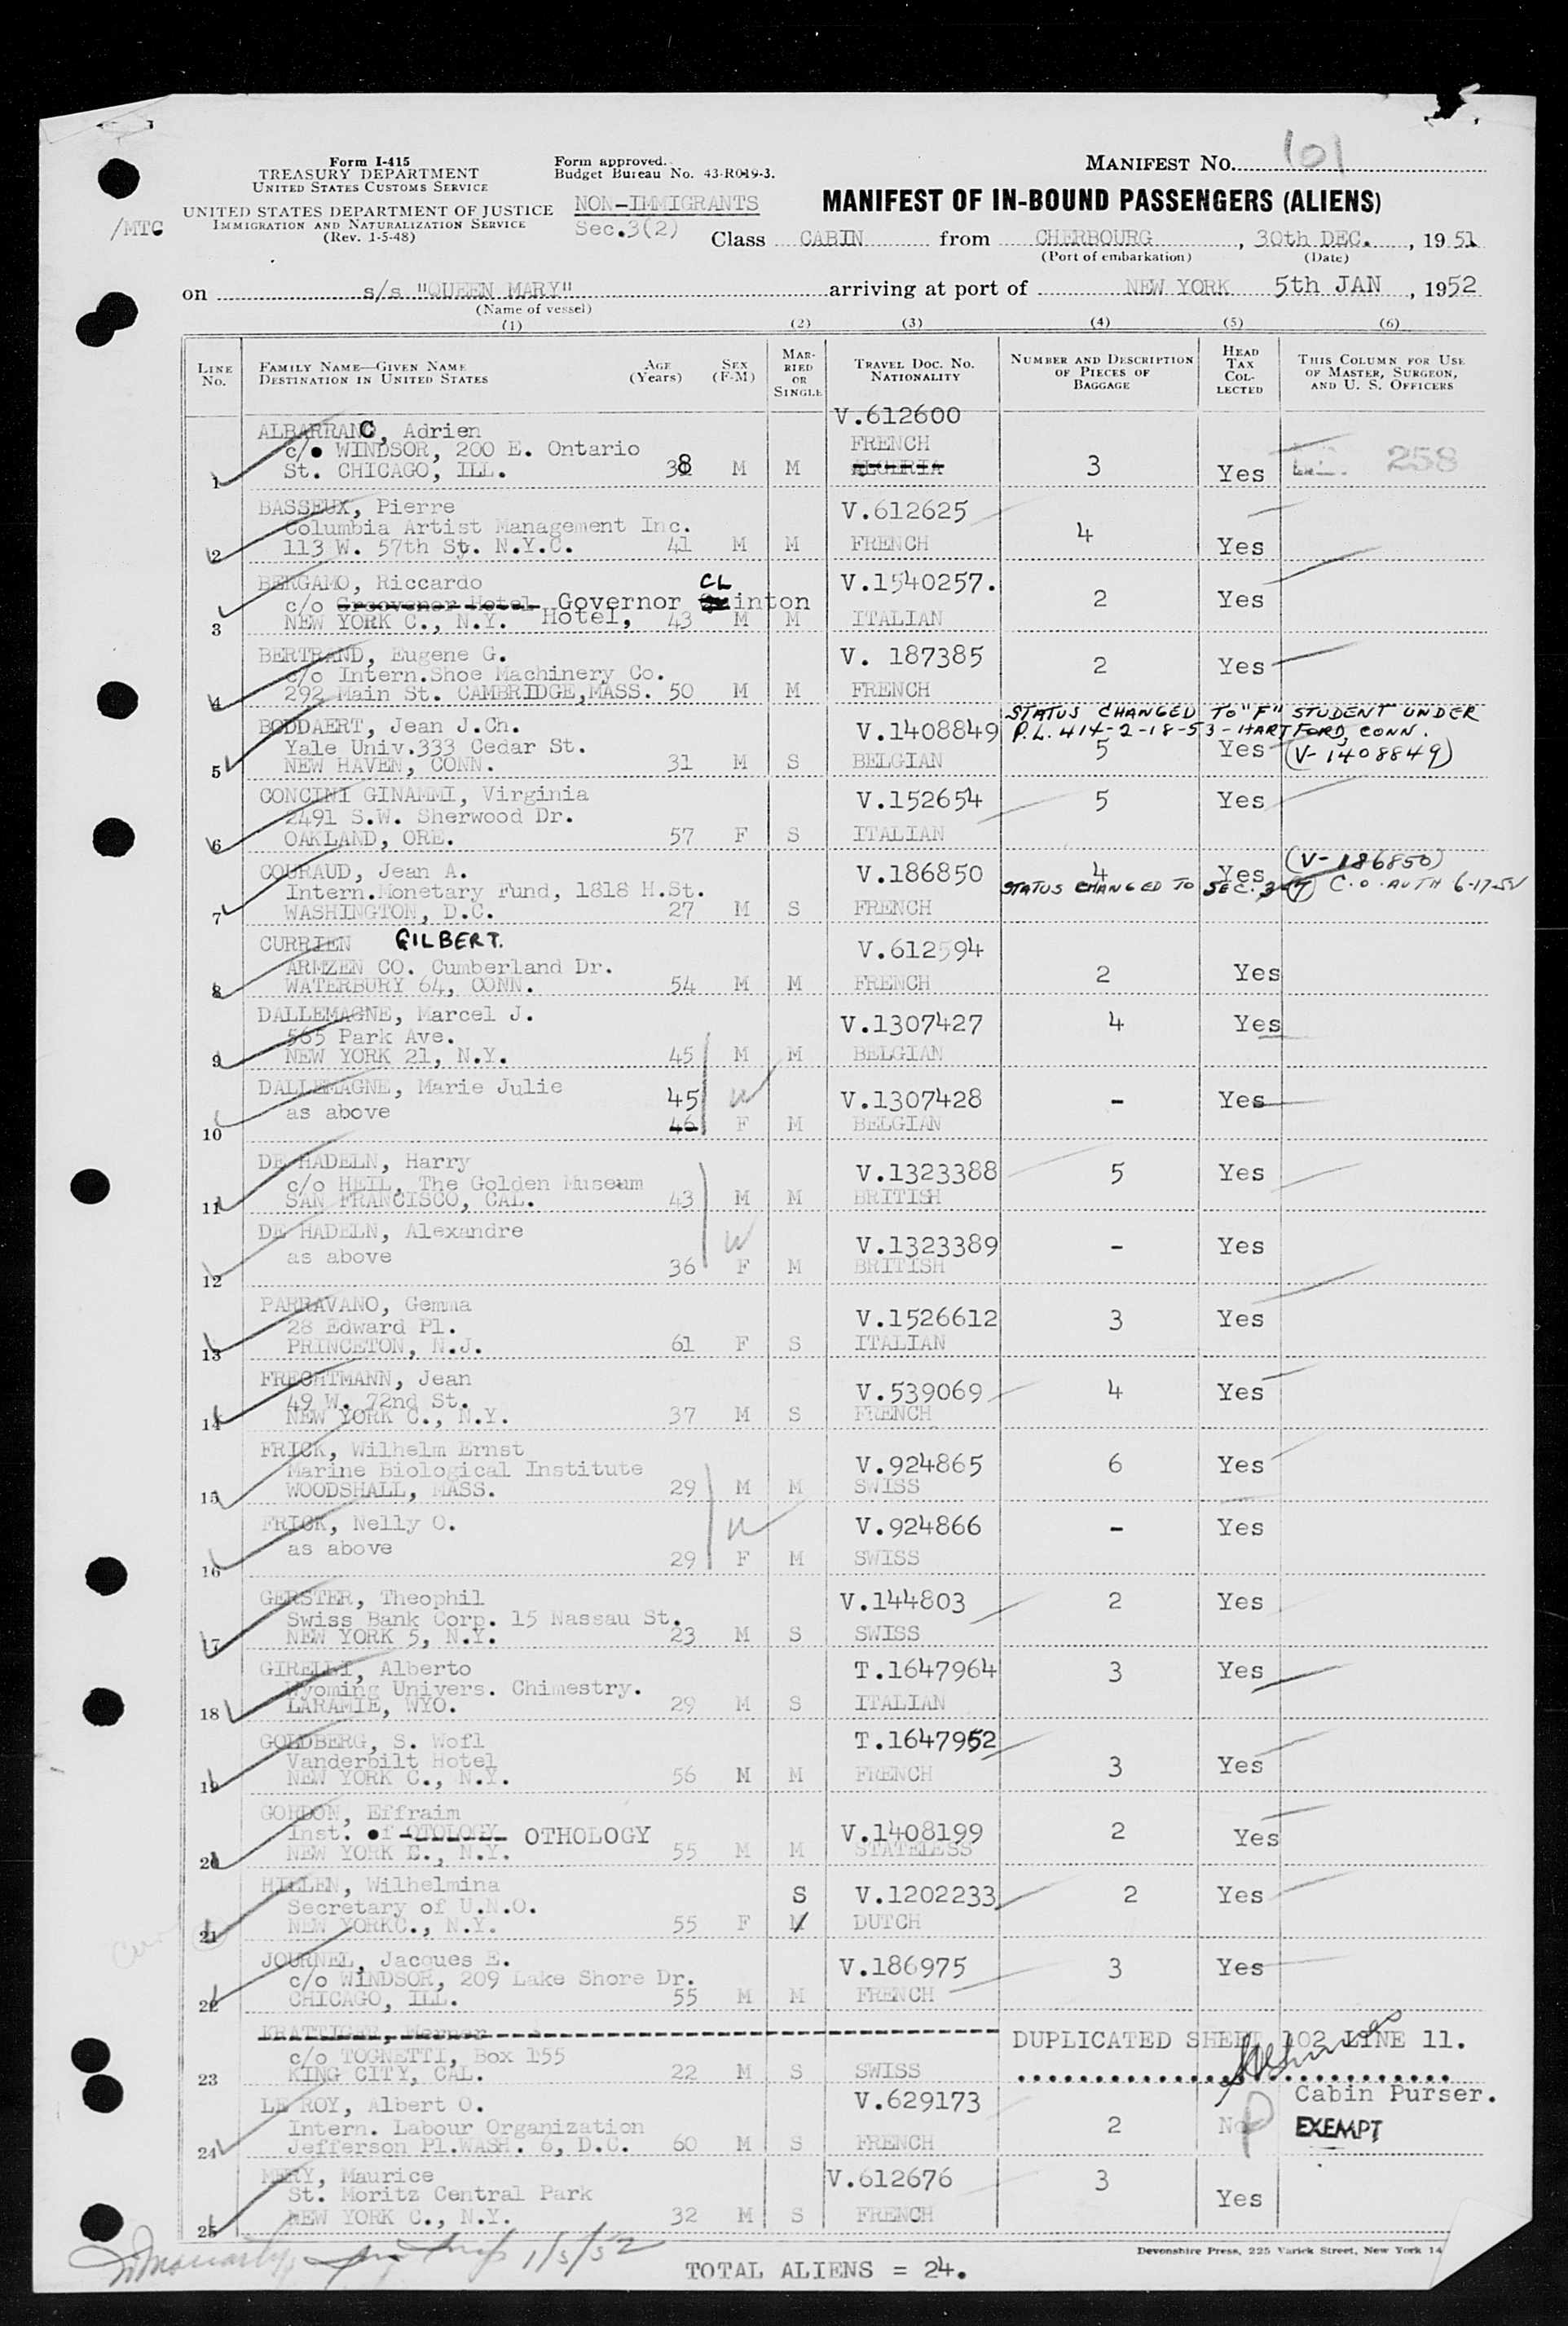 Form I-415
TREASURY DEPARTMENT
UNITED STATES CUSTOMS SERVICE
UNITED STATES DEPARTMENT OF JUSTICE
IMMIGRATION AND NATURALIZATION SERVICE
(Rev. 1-5-48)
/MTC
Form approved.
Budget Bureau No. 43-R019-3.
NON-IMMIGRANTS
Sec.3(2)
MANIFEST NO. 101
MANIFEST OF IN-BOUND PASSENGERS (ALIENS)
Class CABIN from CHERBOURG, 30th DEC., 1951
(Port of embarkation) (Date)
on s/s "QUEEN MARY" arriving at port of NEW YORK 5th JAN, 1952
(Name of vessel)
(1) (2) (3) (4) (5) (6)
LINE NO. FAMILY NAME—GIVEN NAME DESTINATION IN UNITED STATES AGE (Years) SEX (F-M) MARRIED OR SINGLE TRAVEL DOC. NO. NATIONALITY NUMBER AND DESCRIPTION OF PIECES OF BAGGAGE HEAD TAX COLLECTED THIS COLUMN FOR USE OF MASTER, SURGEON, AND U. S. OFFICERS
ALBARRANC, Adrien V.612600
c/o WINDSOR, 200 E. Ontario FRENCH
1 St. CHICAGO, ILL. 38 M M ALGERIA 3 Yes 258
BASSEUX, Pierre V.612625
Columbia Artist Management Inc. 4
2 113 W. 57th St. N.Y.C. 41 M M FRENCH Yes
BERGAMO, Riccardo CL V.1540257.
c/o Grosvenor Hotel Governor inton 2 Yes
3 NEW YORK C., N.Y. Hotel, 43 M M ITALIAN
BERTRAND, Eugene G. V. 187385
c/o Intern.Shoe Machinery Co. 2 Yes
4 292 Main St. CAMBRIDGE,MASS. 50 M M FRENCH
STATUS CHANGED TO "F" STUDENT UNDER
BODDAERT, Jean J.Ch. V.1408849 P.L. 414-2-18-53-HARTFORD, CONN.
Yale Univ.333 Cedar St. 5 Yes (V-1408849)
5 NEW HAVEN, CONN. 31 M S BELGIAN
CONCINI GINAMMI, Virginia V.152654 5 Yes
2491 S.W. Sherwood Dr.
6 OAKLAND, ORE. 57 F S ITALIAN
COURAUD, Jean A. V.186850 4 Yes (V-186850)
Intern.Monetary Fund, 1818 H.St. STATUS CHANGED TO SEC. 3 (7) C.O. AUTH 6-17-52
7 WASHINGTON, D.C. 27 M S FRENCH
CURRIEN GILBERT. V.612594
ARMZEN CO. Cumberland Dr. 2 Yes
8 WATERBURY 64, CONN. 54 M M FRENCH
DALLEMAGNE, Marcel J. V.1307427 4 Yes
565 Park Ave.
9 NEW YORK 21, N.Y. 45 M M BELGIAN
DALLEMAGNE, Marie Julie 45 W V.1307428 - Yes
as above
10 46 F M BELGIAN
DE HADELN, Harry V.1323388 5 Yes
c/o HEIL, The Golden Museum
11 SAN FRANCISCO, CAL. 43 M M BRITISH
DE HADELN, Alexandre W V.1323389 - Yes
as above
12 36 F M BRITISH
PARRAVANO, Gemma V.1526612 3 Yes
28 Edward Pl.
13 PRINCETON, N.J. 61 F S ITALIAN
FRECHTMANN, Jean V.539069 4 Yes
49 W. 72nd St.
14 NEW YORK C., N.Y. 37 M S FRENCH
FRICK, Wilhelm Ernst V.924865 6 Yes
Marine Biological Institute
15 WOODSHALL, MASS. 29 M M SWISS
FRICK, Nelly O. W V.924866 - Yes
as above
16 29 F M SWISS
GERSTER, Theophil V.144803 2 Yes
Swiss Bank Corp. 15 Nassau St.
17 NEW YORK 5, N.Y. 23 M S SWISS
GIRELLI, Alberto T.1647964 3 Yes
Wyoming Univers. Chimestry.
18 LARAMIE, WYO. 29 M S ITALIAN
GOLDBERG, S. Wofl T.1647952
Vanderbilt Hotel 3 Yes
19 NEW YORK C., N.Y. 56 M M FRENCH
GORDON, Effraim
Inst. of OTOLOGY OTHOLOGY V.1408199 2 Yes
20 NEW YORK C., N.Y. 55 M M STATELESS
HILLEN, Wilhelmina S V.1202233 2 Yes
Secretary of U.N.O.
21 NEW YORKC., N.Y. 55 F M DUTCH
JOURNEL, Jacques E. V.186975 3 Yes
c/o WINDSOR, 209 Lake Shore Dr.
22 CHICAGO, ILL. 55 M M FRENCH
KRATTIGER, Werner DUPLICATED SHEET 102 LINE 11.
c/o TOGNETTI, Box 155
23 KING CITY, CAL. 22 M S SWISS
LE ROY, Albert O. V.629173 Cabin Purser.
Intern. Labour Organization 2 No EXEMPT
24 Jefferson Pl.WASH. 6, D.C. 60 M S FRENCH
MERY, Maurice V.612676 3
St. Moritz Central Park Yes
25 NEW YORK C., N.Y. 32 M S FRENCH
1/5/52
Devonshire Press, 225 Varick Street, New York 14
TOTAL ALIENS = 24.